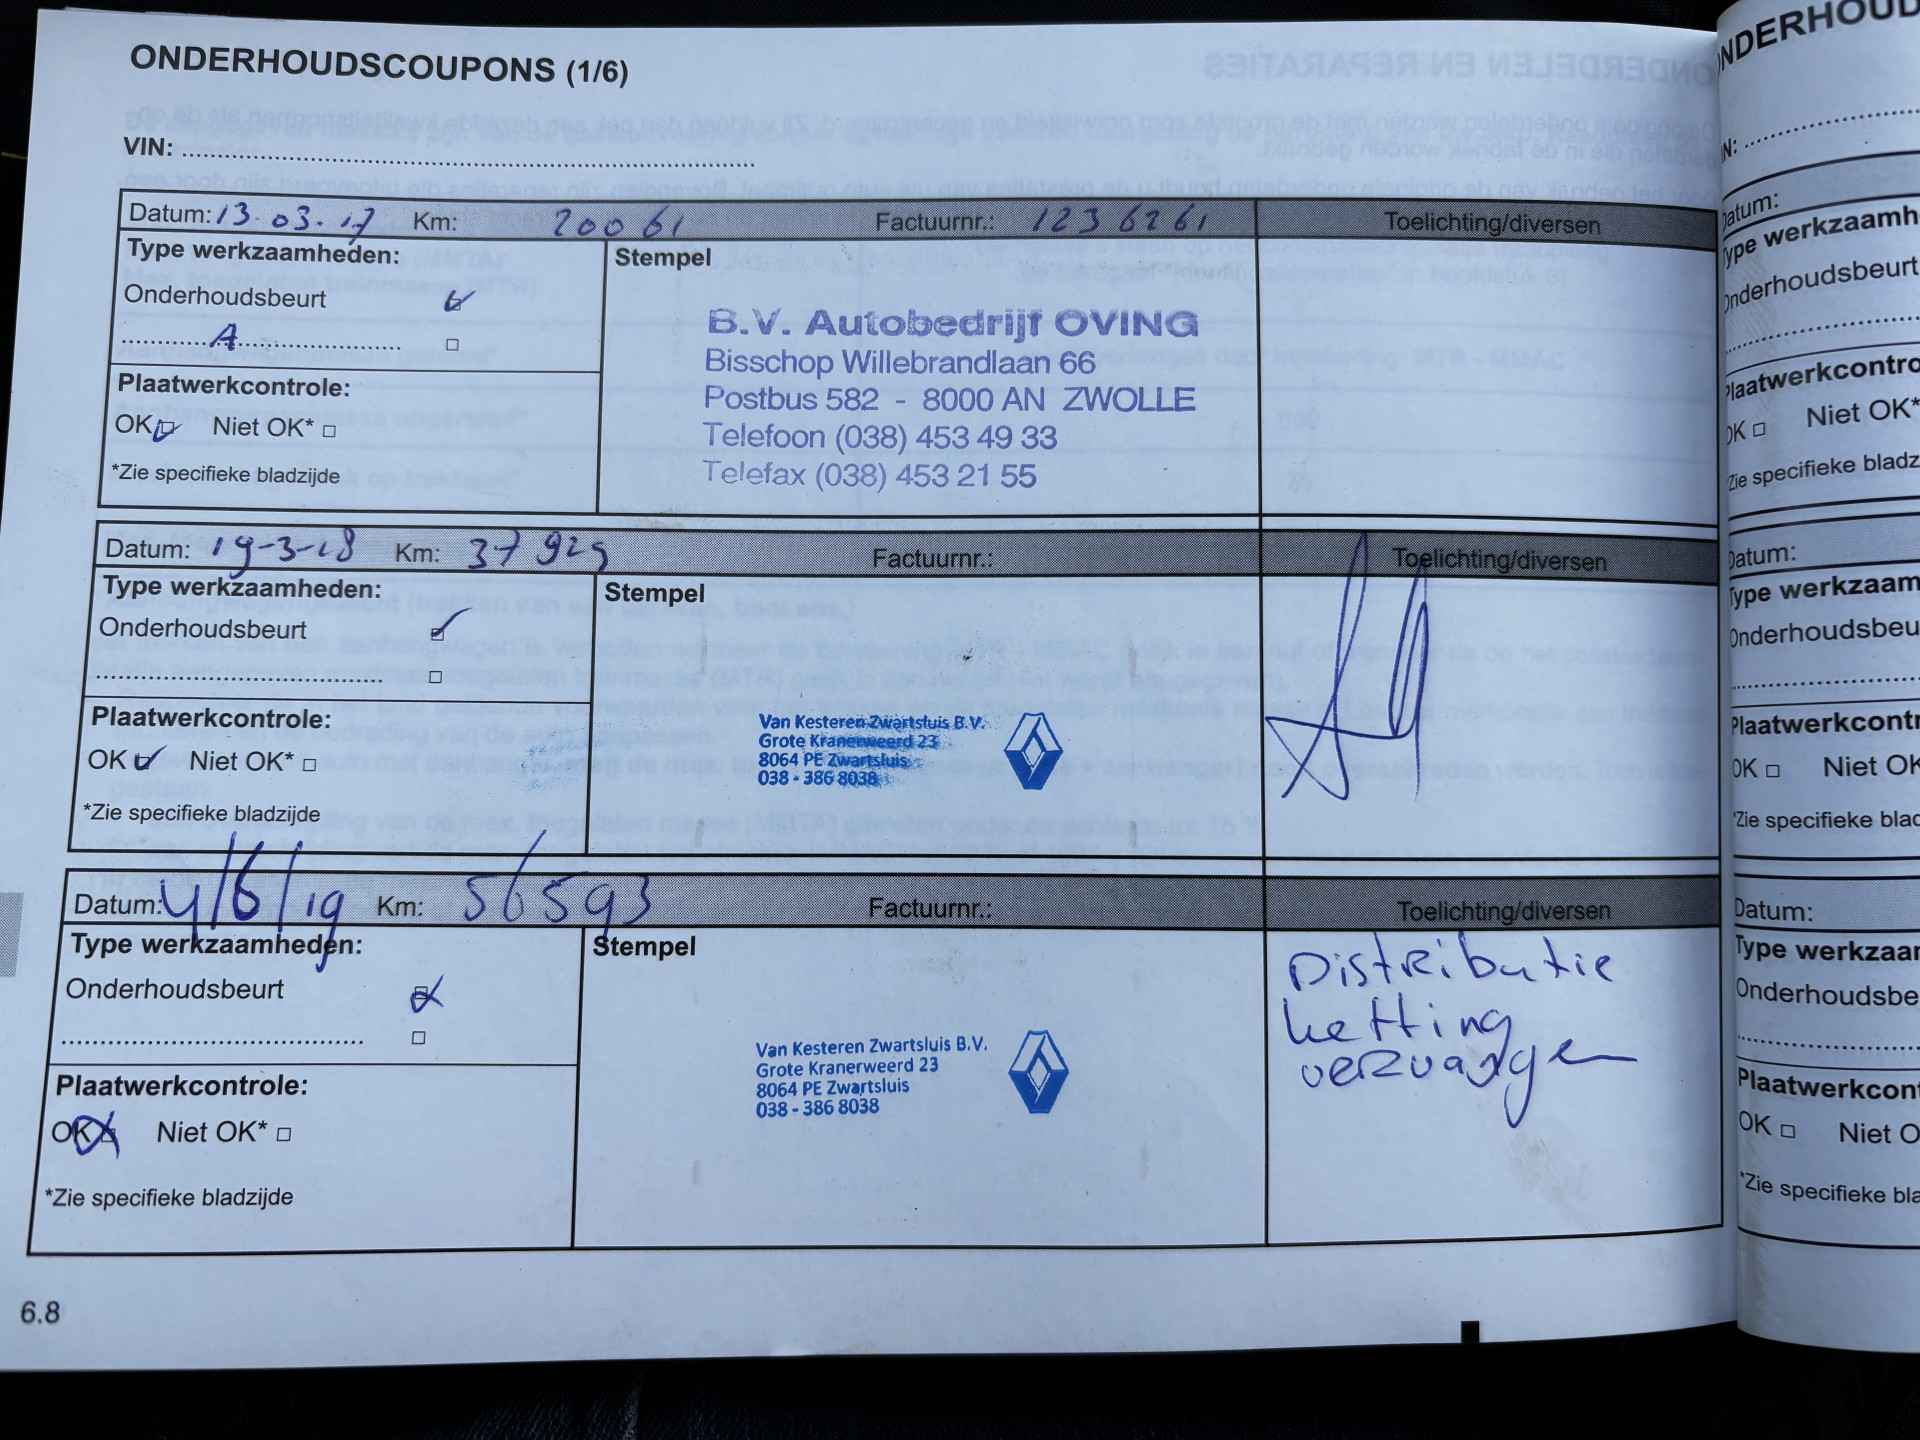 ONDERHOUDSCOUPONS (1/6)
VIN:
Datum: 13-03-17 Km: 20061 Factuurnr.: 1236261 Toelichting/diversen
Type werkzaamheden:
Stempel
Onderhoudsbeurt
A
Plaatwerkcontrole:
OK Niet OK*
*Zie specifieke bladzijde
B.V. Autobedrijf OVING
Bisschop Willebrandlaan 66
Postbus 582 - 8000 AN ZWOLLE
Telefoon (038) 453 49 33
Telefax (038) 453 21 55
Datum: 19-3-18 Km: 37929 Factuurnr.: Toelichting/diversen
Type werkzaamheden:
Stempel
Onderhoudsbeurt
Plaatwerkcontrole:
OK Niet OK*
*Zie specifieke bladzijde
Van Kesteren Zwartsluis B.V.
Grote Kranerweerd 23
8064 PE Zwartsluis
038 - 386 8038
Datum: 4/6/19 Km: 56593 Factuurnr.: Toelichting/diversen
Type werkzaamheden:
Stempel
Onderhoudsbeurt
Plaatwerkcontrole:
OK Niet OK*
*Zie specifieke bladzijde
Van Kesteren Zwartsluis B.V.
Grote Kranerweerd 23
8064 PE Zwartsluis
038 - 386 8038
Distributie
ketting
vervangen
6.8
NDERHOUD
N:
Datum:
Type werkzaamh
Onderhoudsbeurt
Plaatwerkcontro
OK Niet OK*
*Zie specifieke bladz
Datum:
Type werkzaam
Onderhoudsbeu
Plaatwerkcontr
OK Niet OK
*Zie specifieke blad
Datum:
Type werkzaar
Onderhoudsbe
Plaatwerkcon
OK Niet O
*Zie specifieke bla